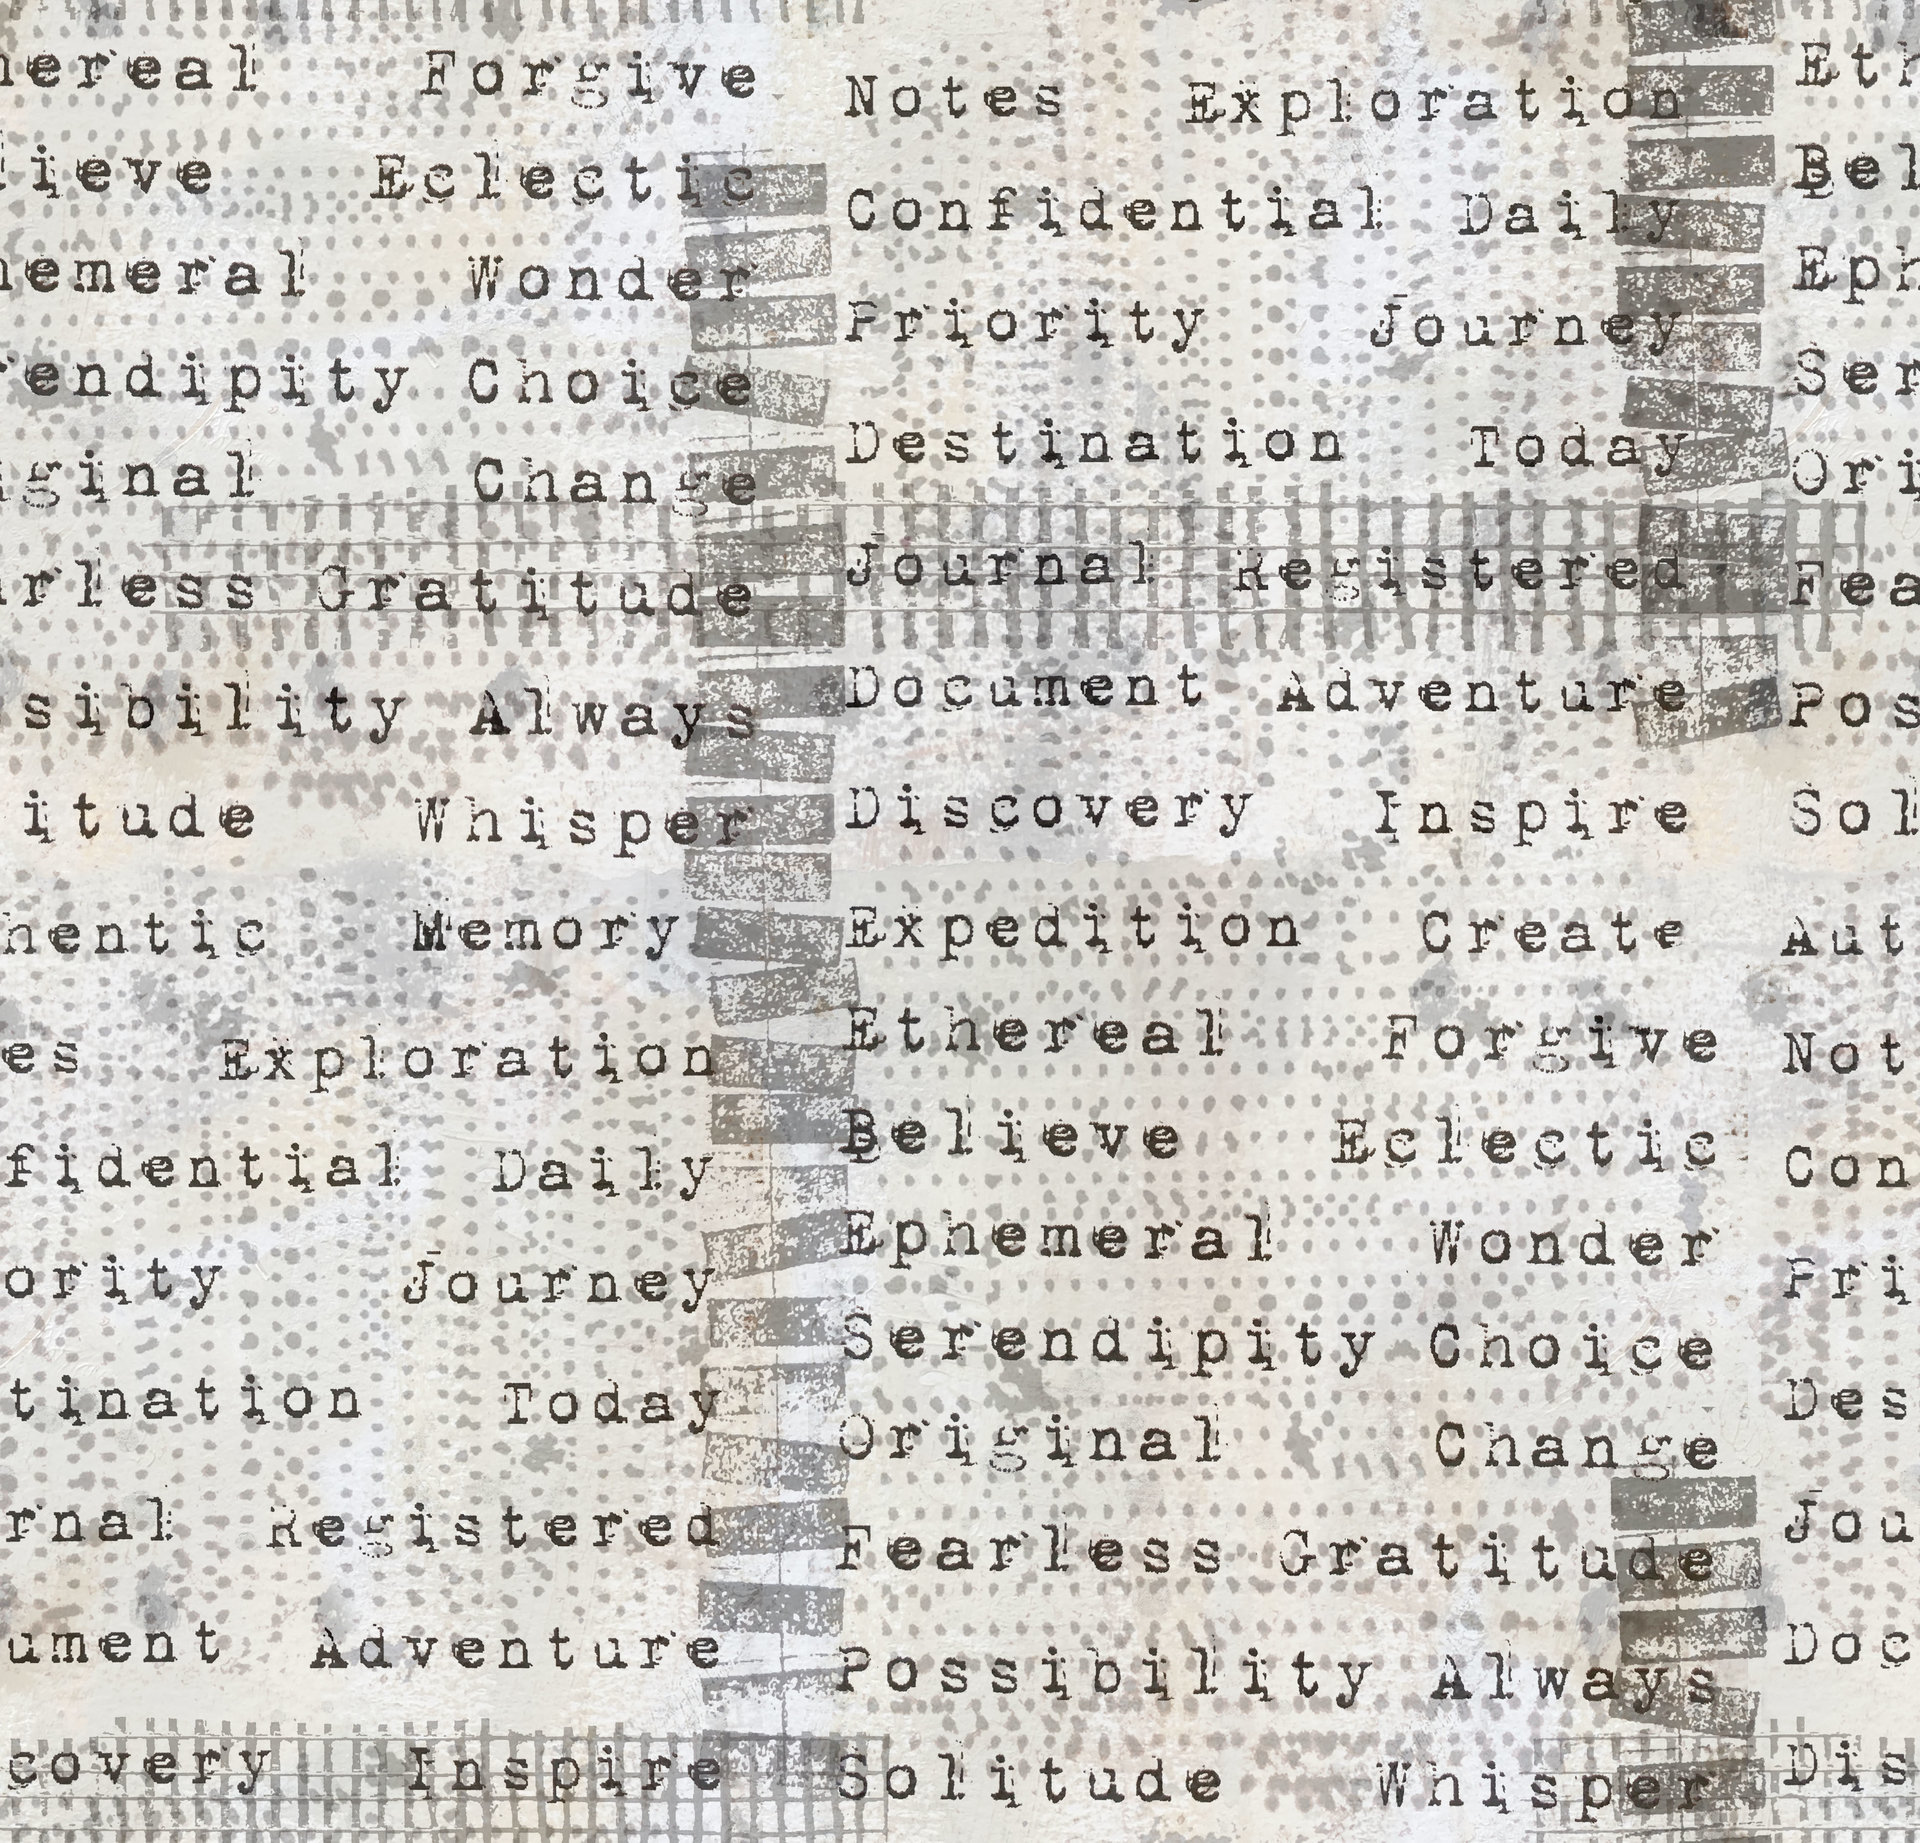 hereal Forgive
lieve Eclectic
hemeral Wonder
rendipity Choice
iginal Change
arless Gratitude
sibility Always
itude Whisper
hentic Memory
es Exploration
fidential Daily
ority Journey
tination Today
rnal Registered
ument Adventure
covery Inspire
Notes Exploration
Confidential Daily
Priority Journey
Destination Today
Journal Registered
Document Adventure
Discovery Inspire
Expedition Create
Ethereal Forgive
Believe Eclectic
Ephemeral Wonder
Serendipity Choice
Original Change
Fearless Gratitude
Possibility Always
Solitude Whisper
Eth
Bel
Eph
Ser
Ori
Fea
Pos
Sol
Aut
Not
Con
Pri
Des
Jou
Doc
Dis